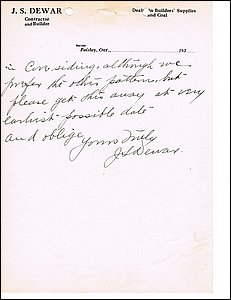 J. S. DEWAR
Contractor
and Builder
Dealer in Builders' Supplies
and Coal
Paisley, Ont. 192
in Cove siding, although we
prefer the other pattern, but
please get this away at very
earliest possible date
and oblige,
Yours truly
J S Dewar.